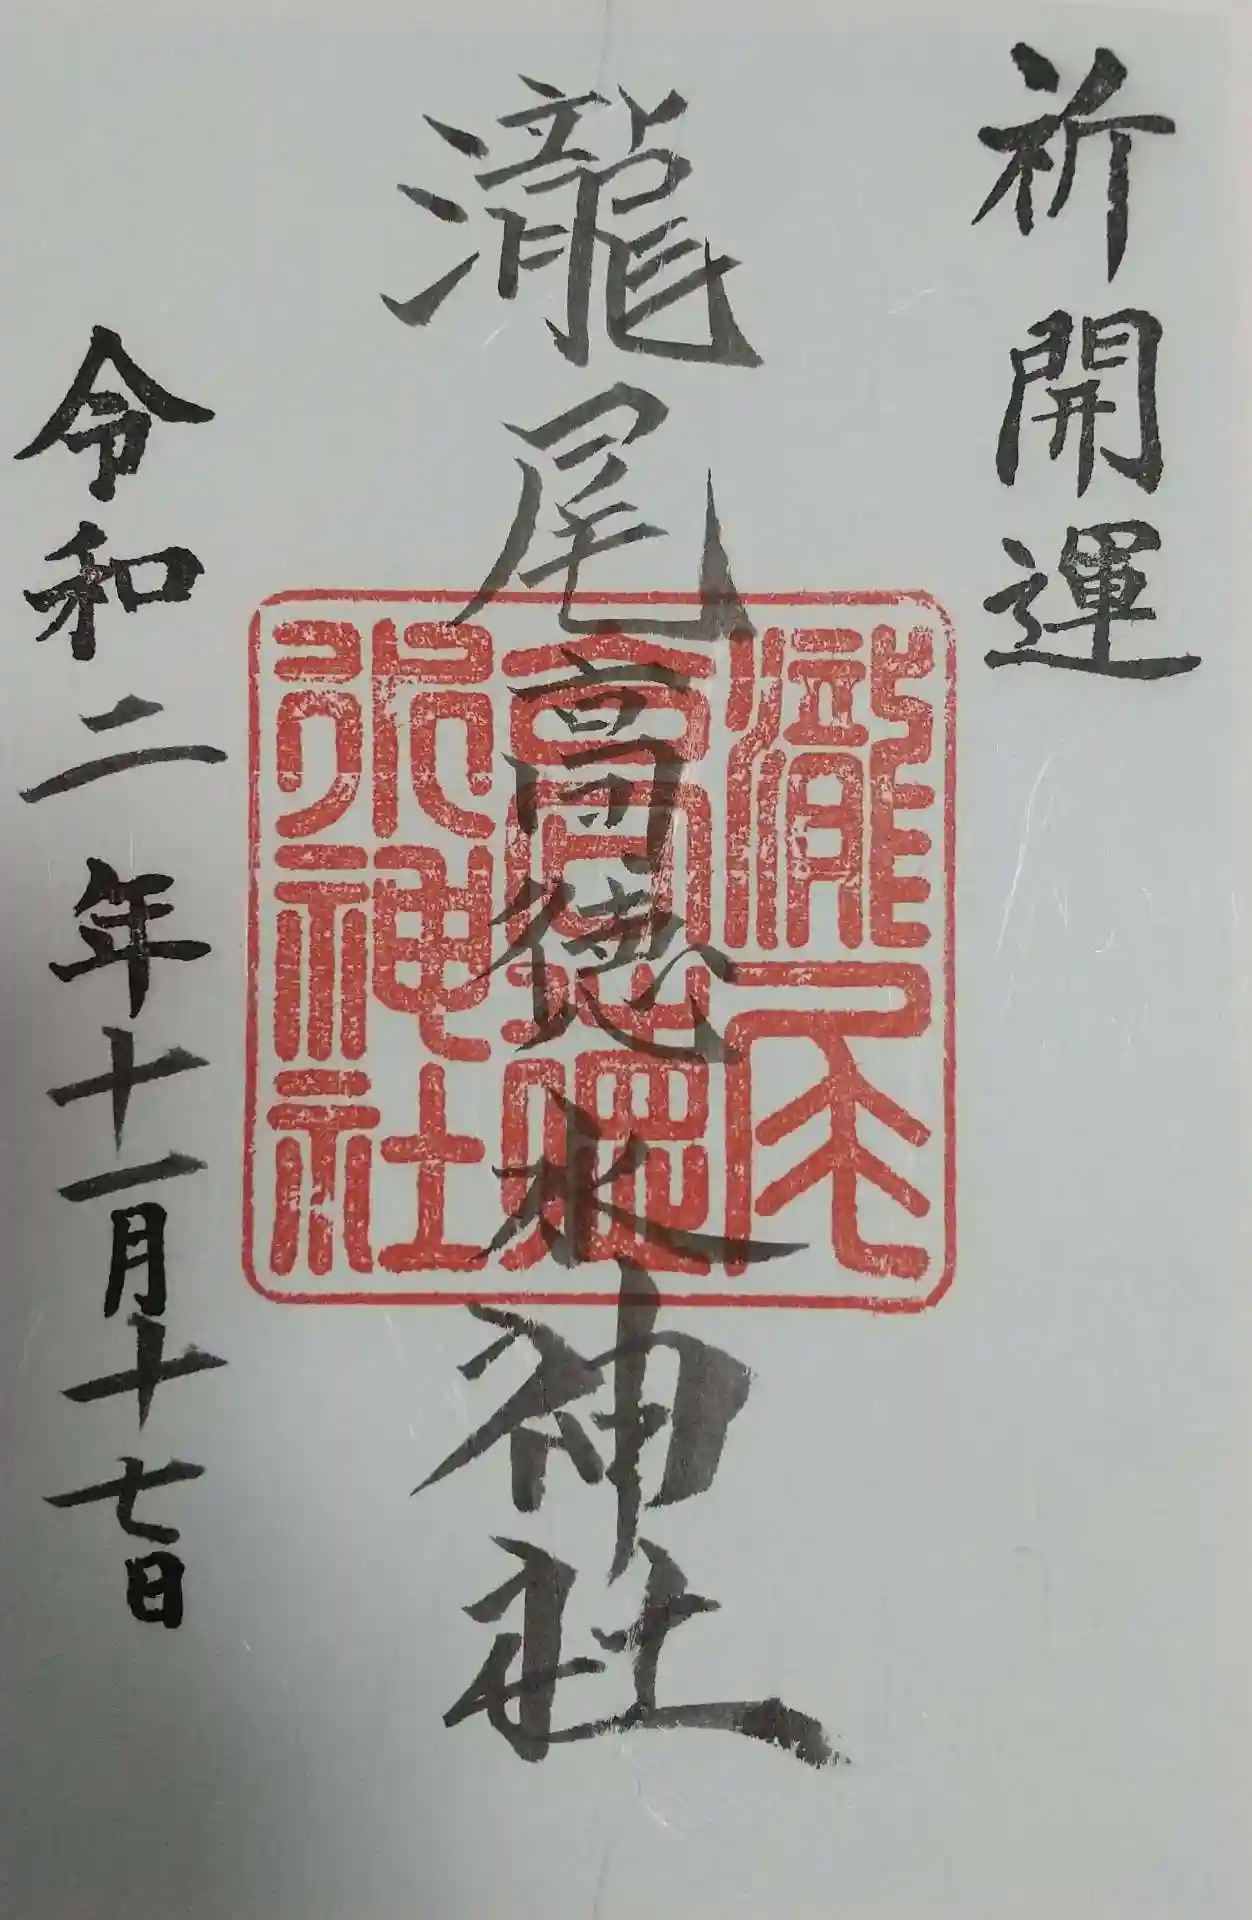 祈開運
瀧尾高徳水神社
瀧尾
高徳
水神社
令和二年十一月十七日